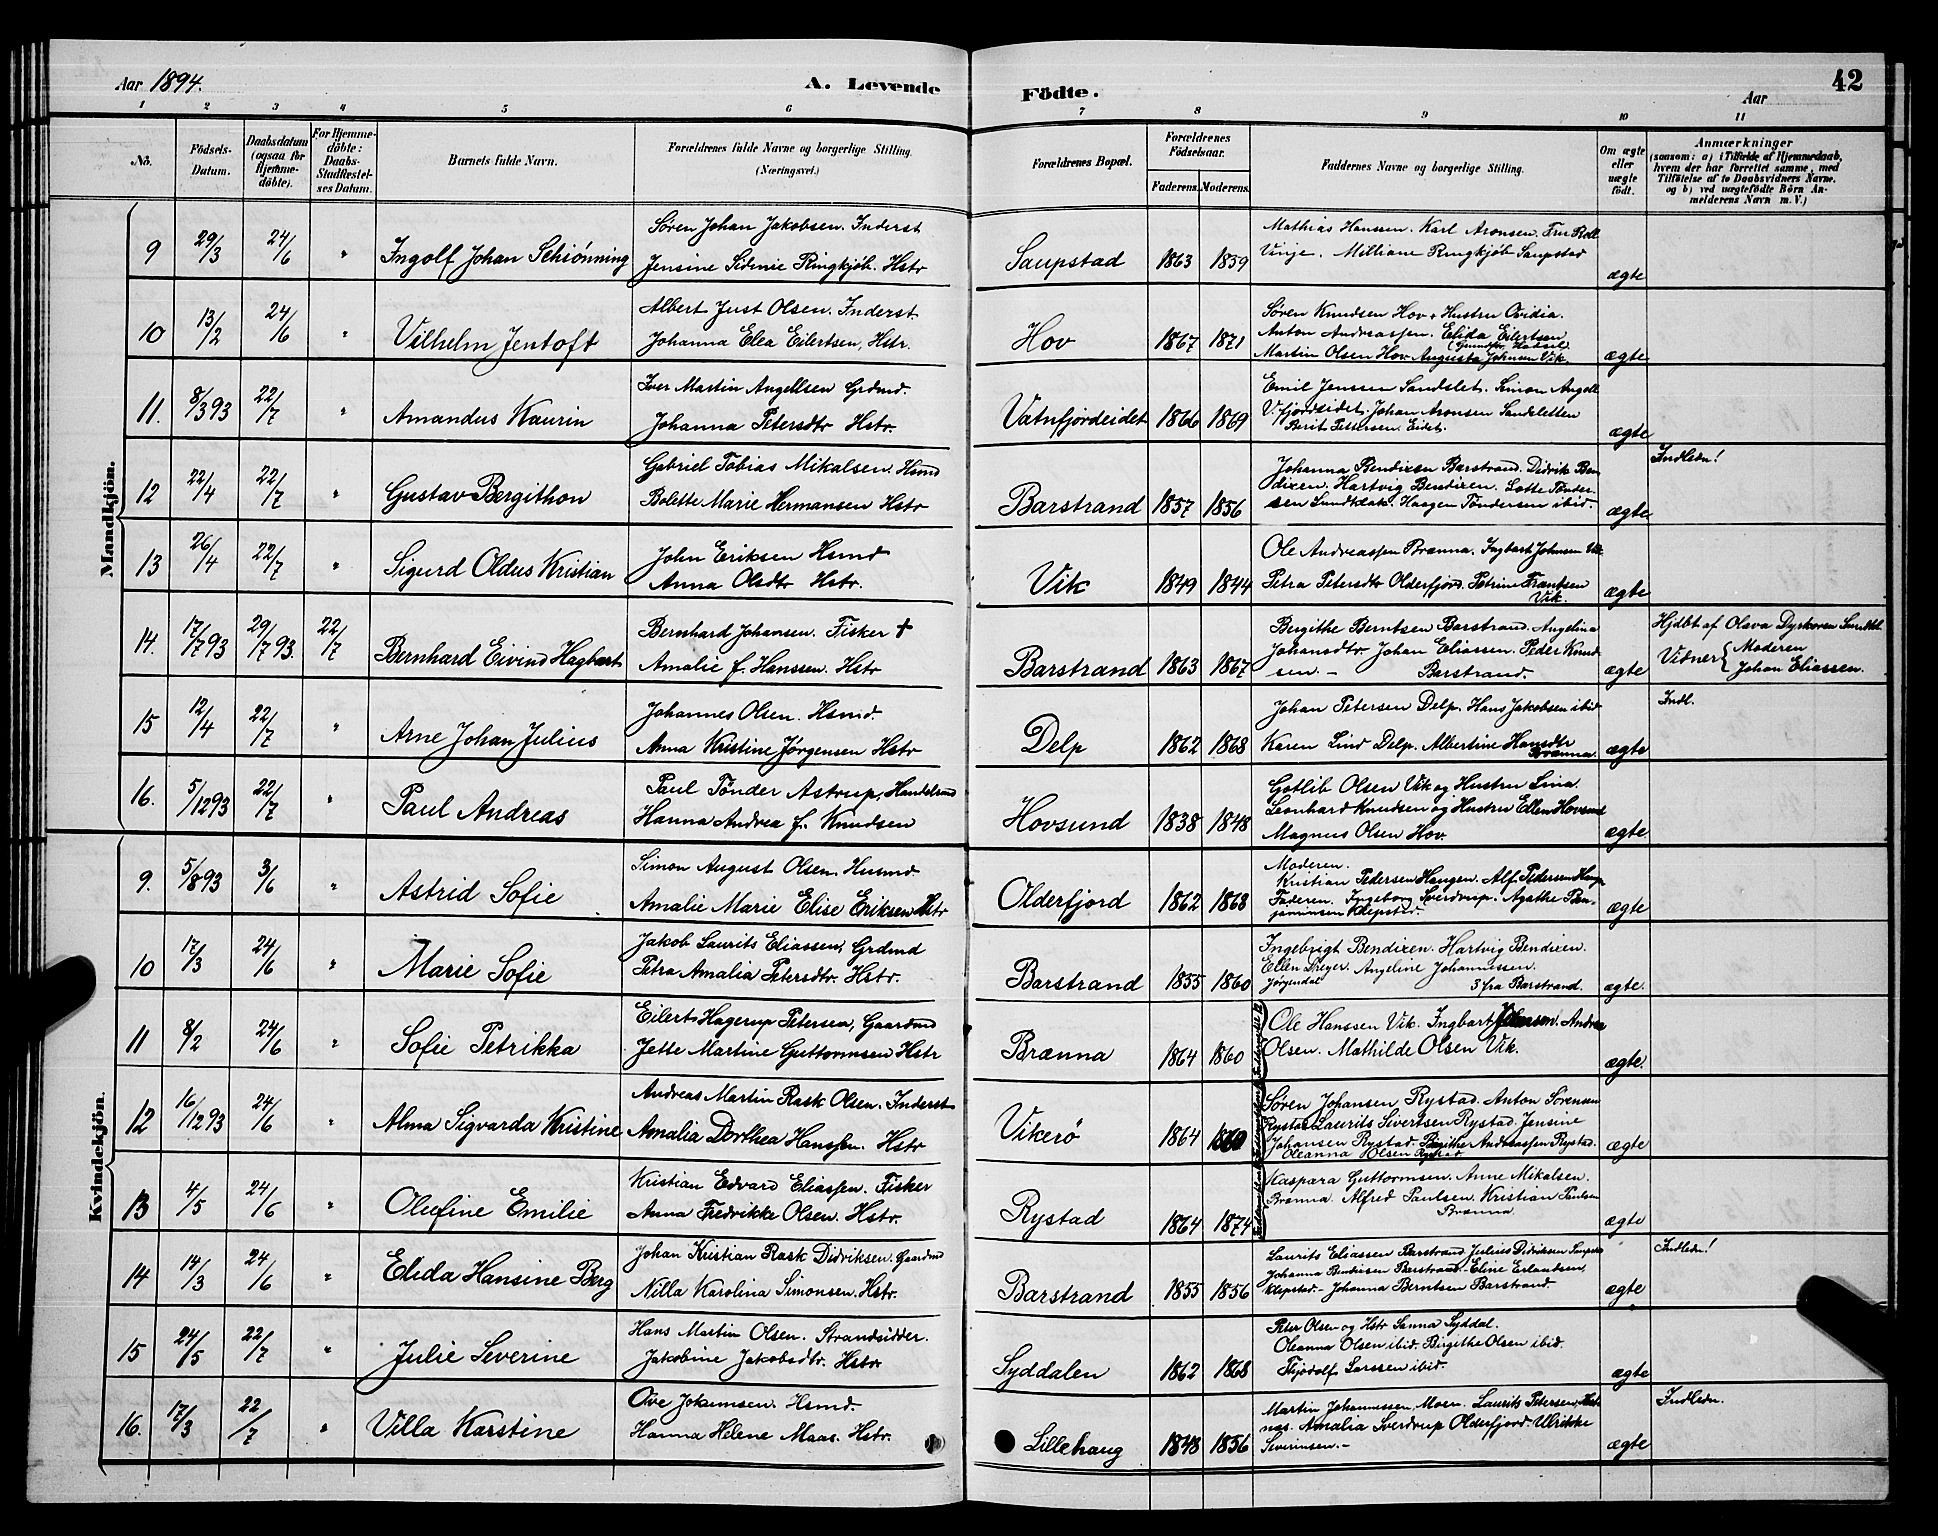 Aar 1894. A. Levende Födte. Aar 42
1 2 3 4 5 6 7 8 9 10 11
No. Födsels-Datum. Daabsdatum (ogsaa for Hjemme-döbte). For Hjemme-döbte: Daabs-Stadfæstel-ses Datum. Barnets fulde Navn. Forældrenes fulde Navne og borgerlige Stilling. (Næringsvei.) Forældrenes Bopæl. Forældrenes Födselsaar. Faderens. Moderens. Faddernes Navne og borgerlige Stilling. Om ægte eller uægte födt. Anmærkninger (saasom: a) i Tilfælde af Hjemmedaab, hvem der har forrettet samme, med Tilföielse af to Daabsvidners Navne, og b) ved uægtefödte Börn An-melderens Navn m. V.)
Mandkjön.
9 29/3 24/6 " Ingolf Johan Schiønning
Søren Johan Jakobsen. Inderst
Jensine Sidenie Ringkjøb. Hstr
Saupstad 1863 1859
Mathias Hanssen. Karl Aronsen. Fru Roll
Vinje. Milliane Ringkjøb Saupstad
ægte
10 13/2 24/6 " Vilhelm Jentoft
Albert Just Olsen. Inderst.
Johanna Elea Eilertsen, Hstr.
Hov 1867 1871
Søren Knudsen Hov + Hustru Ovidia.
Anton Andreassen. Elida Eilertsen
Martin Olsen Hov. Augusta Johnsen Vik.
ægte
11. 8/3 93 22/7 " Amandus Kaurin
Iver Martin Angellsen Grdmd.
Johanna Petersdtr Hstr.
Vatnfjordeidet 1866 1869
Emil Jenssen Sandslet. Simon Angell
V.fjordeidet. Johan Aronsen Sandsletten
Berit Pettersen. Eidet.
ægte
12 22/4 22/7 " Gustav Bergithon
Gabriel Tobias Mikalsen. Hsmd
Bolette Marie Hermansen Hstr
Barstrand 1857 1856
Johanna Bendixen Barstrand. Didrik Ben
dixen. Hartvig Bendixen. Lotte Tønder-
sen Sundklak. Haagen Tøndersen ibid.
ægte Indledn!
13 26/4 22/7 " Sigurd Oldus Kristian
John Eriksen Hsmd
Anna Olsdtr Hstr.
Vik 1849 1844
Ole Andreassen Brænna. Ingbart Johnsen Vik
Petra Petersdtr Olderfjord. Petrine Frantsen
Vik.
ægte
14. 17/7 93 29/7 93. 22/7 Bernhard Eivind Hagbart
Bernhard Johansen. Fisker +
Amalie f. Hanssen. Hstr
Barstrand 1863 1867
Bergithe Berntsen Barstrand. Angelina
Johansdtr. Johan Eliassen. Peder Knud
sen. – Barstrand.
ægte
Hjdbt af Olava Dyrkoren
Vidner { Moderen
Johan Eliassen.
15 12/4 22/7 " Arne Johan Julius
Johannes Olsen. Hsmd.
Anna Kristine Jørgensen Hstr
Delp 1862 1868
Johan Petersen Delp. Hans Jakobsen ibid
Karen Lind Delp. Albertine Hansdtr
Brænna
ægte Indl.
16. 5/12 93 22/7 " Paul Andreas
Paul Tønder Astrup, Handelsmd
Hanna Andrea f. Knudsen
Hovsund 1838 1848
Gotlib Olsen Vik og Hustru Lina.
Leonhard Knudsen og Hustru Ellen Hovsund
Magnus Olsen Hov.
ægte
Kvindekjön.
9. 5/8 93 3/6 " Astrid Sofie
Simon August Olsen. Husmd
Amalie Marie Elise Eriksen Hstr
Olderfjord 1862 1868
Moderen.
Kristian Pedersen Haugen. Alf Pedersen Haug
Faderen. Ingeborg Sverdrup. Agathe Ben-
jaminsen Klepstad.
ægte
10 17/3 24/6 " Marie Sofie
Jakob Laurits Eliassen, Grdmd
Petra Amalia Petersdtr. Hstr.
Barstrand 1855 1860
Ingebrigt Bendixen. Hartvig Bendixen.
Ellen Dreyer. Angeline Johannessen.
Jørgendal 3 fra Barstrand.
ægte.
11 8/2 24/6 " Sofie Petrikka
Eilert Hagerup Petersen, Gaardmd
Jette Martine Guttormsen Hstr
Brænna 1864 1860
Ole Hanssen Vik. Ingbart Johnsen. Andrea
Olsen. Mathilde Olsen Vik.
ægte.
12 16/12 93 24/6 " Alma Sigvarda Kristine
Andreas Martin Rask Olsen. Inderst
Amalia Dorthea Hanssen. Hstr
Vikerö 1864
Søren Johansen Rystad. Anton Sørensen
Rystad Laurits Sivertsen Rystad. Jensine
Johansen Rystad. Birgithe Andreassen Rystad.
Oleanna Olsen Rystad
ægte
13 4/5 24/6 " Olufine Emilie
Kristian Edvard Eliassen. Fisker
Anna Fredrikke Olsen. Hstr.
Rystad 1864 1874
Kaspara Guttormsen. Anne Mikalsen.
Brænna. Alfred Paulsen. Kristian Paulsen
Brænna.
ægte
14 14/3 24/6 " Elida Hansine Berg
Johan Kristian Rask Didriksen. Gaardmd
Nilla Karolina Simonsen. Hstr.
Barstrand 1855 1856
Laurits Eliassen Barstrand. Julius Didriksen Saupstad
Johanna Bendixen Barstrand. Eline Erlandsen,
Klepstad. – Johanna Berntsen Barstrand.
ægte Indledn!
15 24/5 22/7 " Julie Severine
Hans Martin Olsen. Strandsidder.
Jakobine Jakobsdtr. Hstr.
Syddalen 1862 1868
Peter Olsen og Hstr Sanna Syddal.
Oleanna Olsen ibid. Birgithe Olsen ibid.
Thjodolf Larssen ibid.
ægte
16. 17/3 22/7 " Villa Karstine
Ove Jokumsen. Hsmd.
Hanna Helene Maas. Hstr.
Lillehaug 1848 1856
Martin Johannessen, Moen. Laurits Petersen, Hst
nes. Amalia Sverdrup Olderfjord. Ulrikke
Severinsen. –
ægte Indledn.